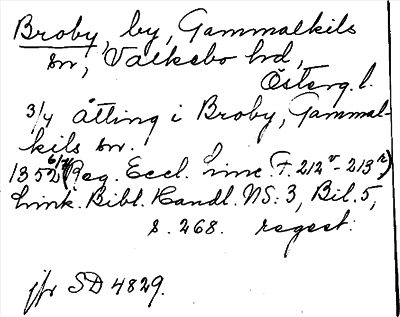 Broby, by, Gammalkils
sn, Valkebo hd,
Österg. l.
3/4 åtting i Broby, Gammal-
kils sn.
1352 6/7 (Reg. Eccl. Linc. F. 212v - 213r)
Link. Bibl. Handl. NS: 3, Bil. 5,
s. 268. regest.
jfr SD 4829.